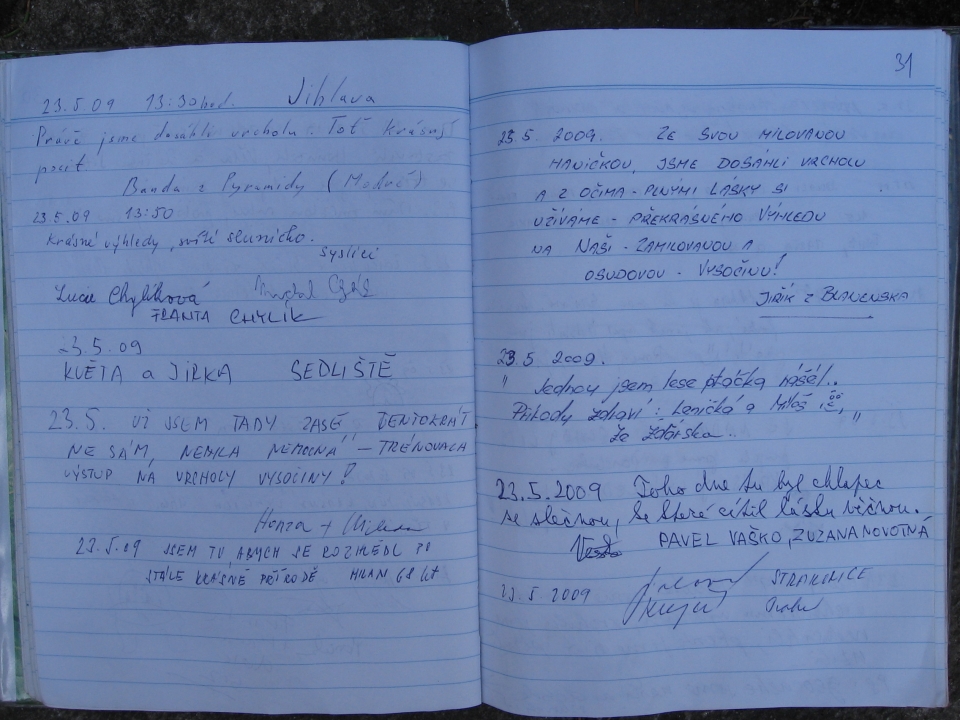 23.5.09 13:30 hod. Jihlava
Právě jsme dosáhli vrcholu. Toť krásný
pocit.
Banda z Pyramidy
23.5.09 13:50
Krásné výhledy, svítí sluníčko.
syslíci
Lucie Chylíková
FRANTA CHYLÍK
23.5.09
KVĚTA a JIRKA SEDLIŠTĚ
23.5. UŽ JSEM TADY ZASE TENTOKRÁT
NE SÁM, NEBYLA NEMOCNÁ – TRÉNOVALA
VÝSTUP NA VRCHOLY VYSOČINY!
Honza + Milena
23.5.09 JSEM TU ABYCH SE ROZHLÉDL PO
STÁLE KRÁSNÉ PŘÍRODĚ MILAN 68 let
31
23.5. 2009. ZE SVOU MILOVANOU
HANIČKOU, JSME DOSÁHLI VRCHOLU
A Z OČIMA - PLNÝMI LÁSKY SI
UŽÍVÁME - PŘEKRÁSNÉHO VÝHLEDU
NA NAŠI - ZAMILOVANOU A
OSUDOVOU - VYSOČINU!
JIŘÍK Z BLAŽENSKA
23.5 2009.
" Jednou jsem lese ptáčka nášel..
Příhody zdraví: Lenička a Miloš "
Ze Žďárska..
23.5.2009 Toho dne tu byl chlapec
se slečnou, ke které cítil lásku věčnou.
PAVEL VAŠKO, ZUZANA NOVOTNÁ
23.5 2009 STRAKONICE
Praha